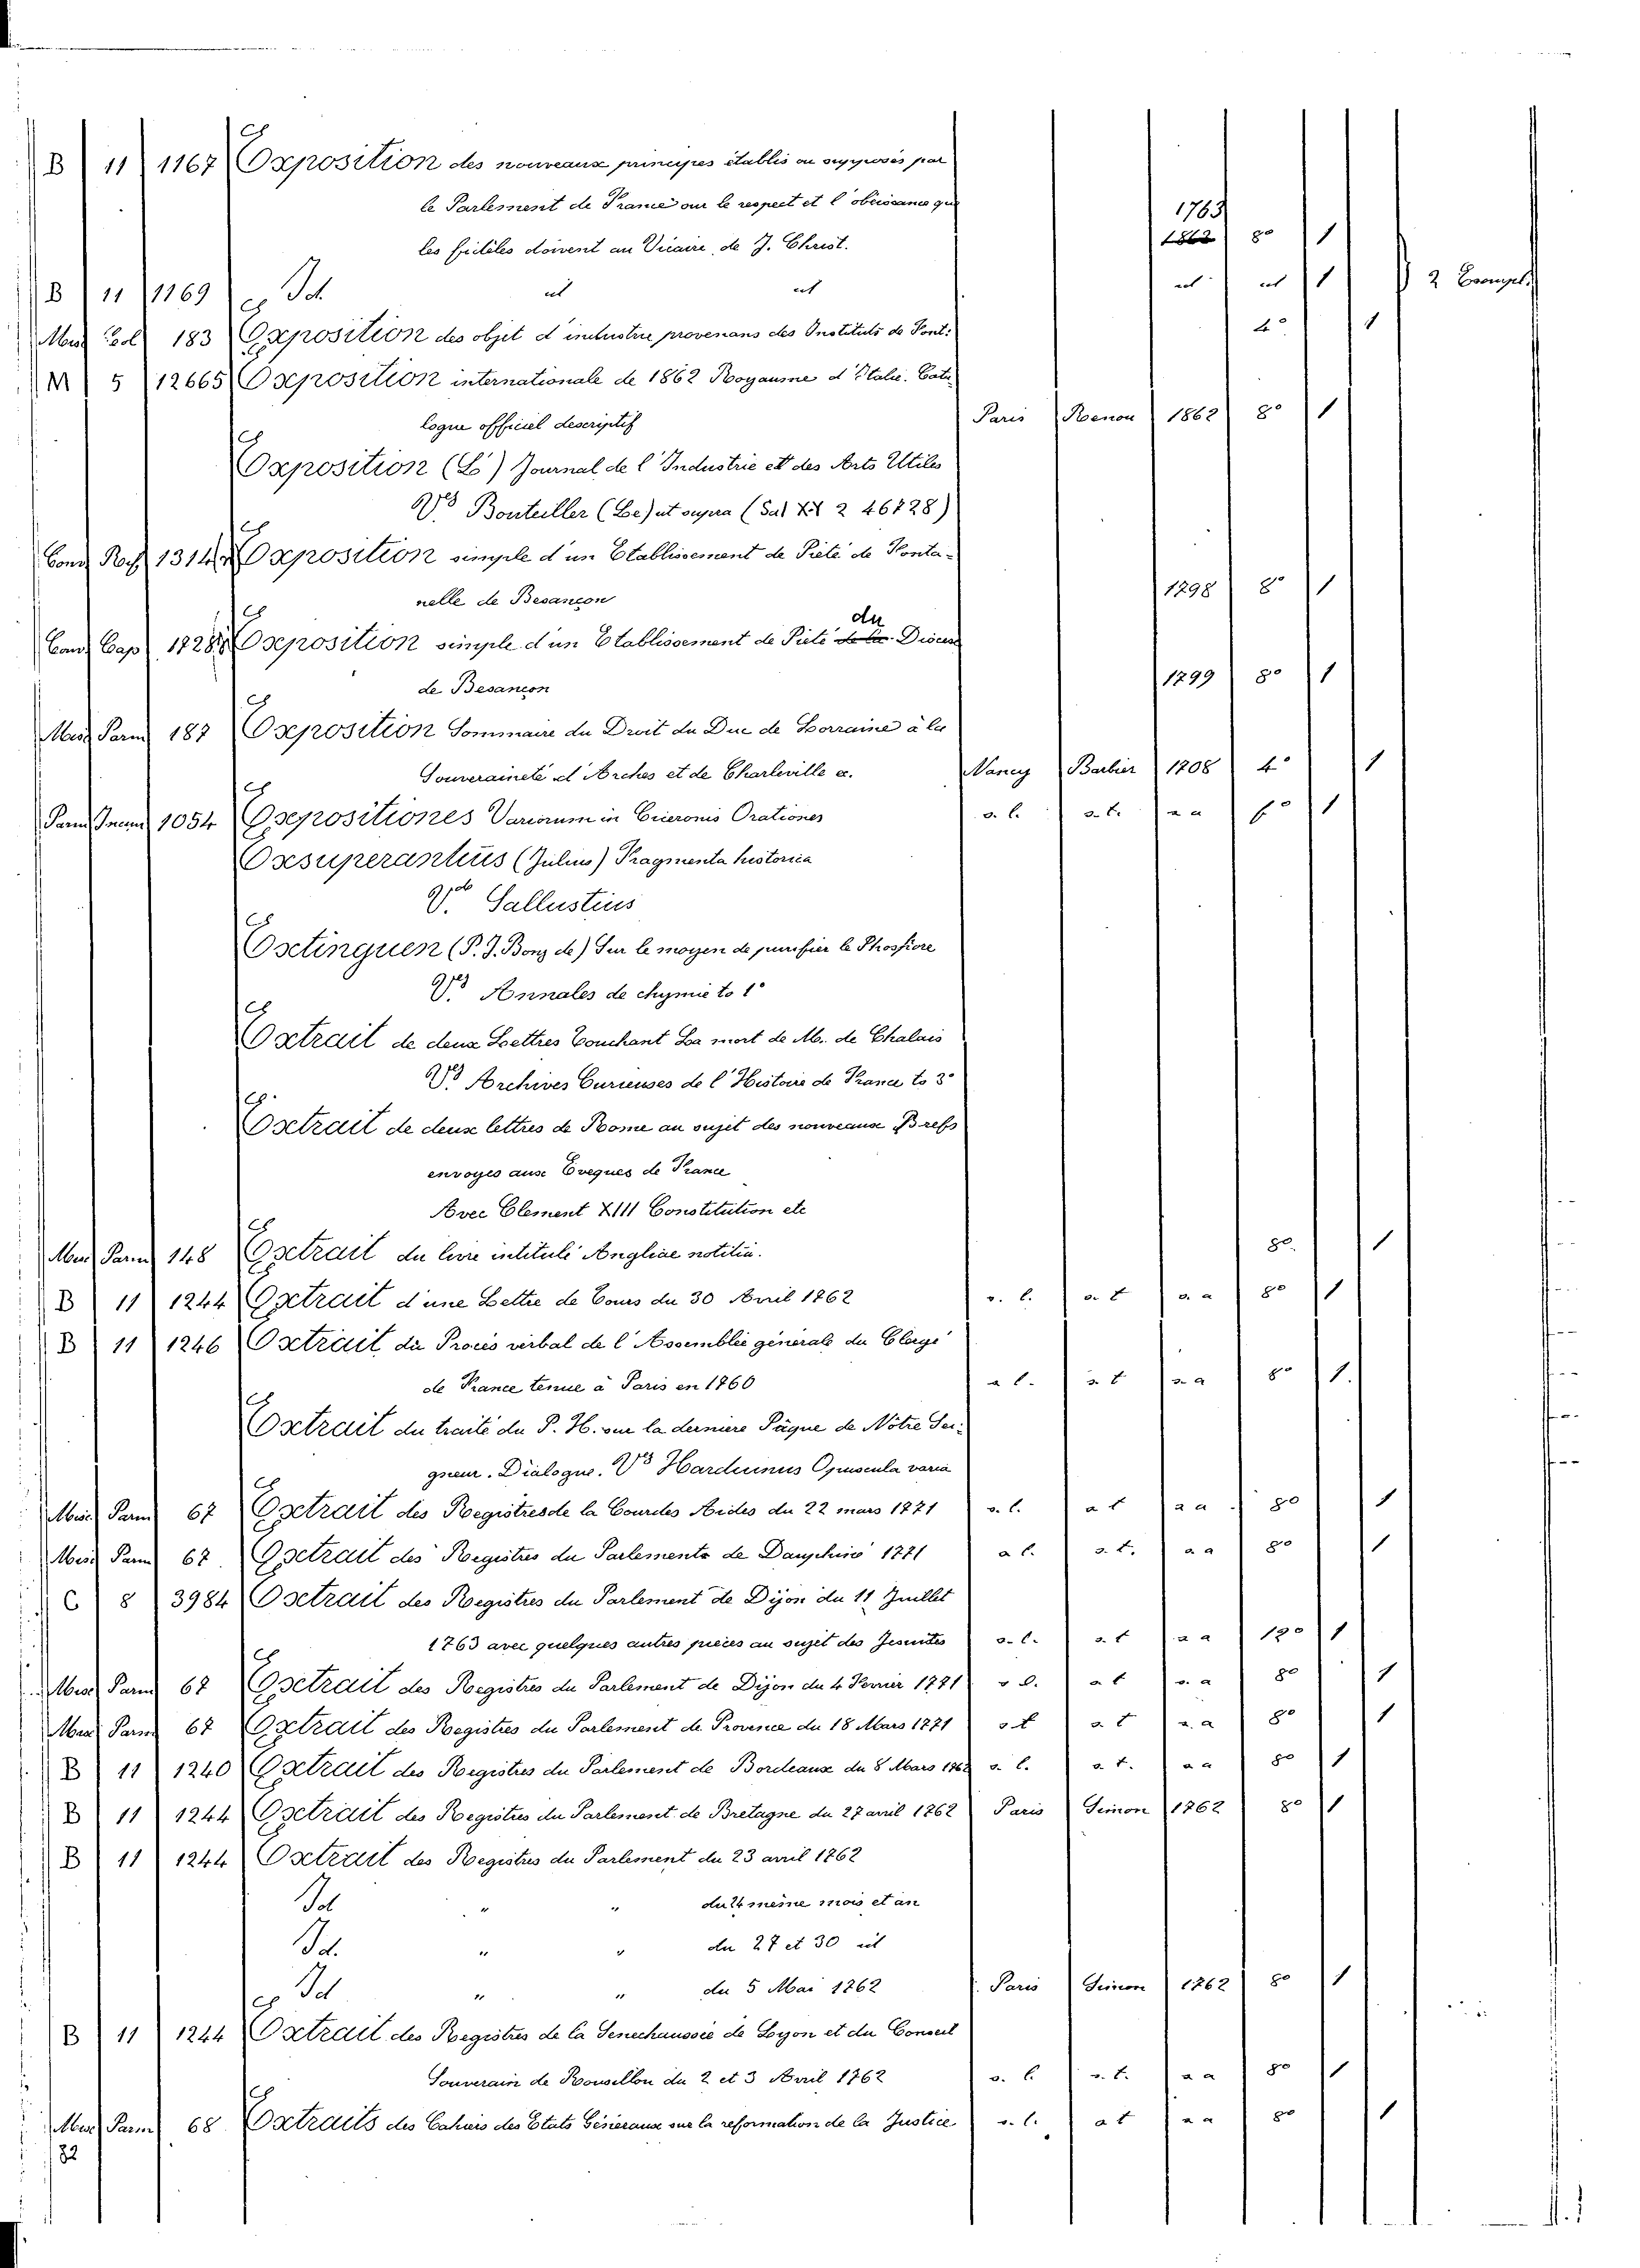 B 11 1167 Exposition des nouveaux principes établis ou supposés par
le Parlement de France sur le respect et l'obéissance que
les fidèles doivent au Vicaire de J. Christ. 1763 8° 1
B 11 1169 Id. ut ut ut ut 1 2 Exempl.
Misc Fol 183 Exposition des objet d'industrie provenans des Instituts de Pont: 4° 1
M 5 12665 Exposition internationale de 1862 Royaume d'Italie. Cata
logue officiel descriptif Paris Renou 1862 8° 1
Exposition (L') Journal de l'Industrie et des Arts Utiles
V° Bouteiller (Le) ut supra (Sal XX 2 46728)
Cond Ros 1314 Exposition simple d'un Etablissement de Pieté de Fonta-
nelle de Besancon 1798 8° 1
Cond Cap 1728 Exposition simple d'un Etablissement de Pieté du Dioces
de Besancon 1799 8° 1
Misc Parm 187 Exposition Sommaire du Droit du Duc de Lorraine à la
Souveraineté d'Arches et de Charleville &. Nancy Barbier 1708 4° 1
Parm 1054 Expositiones Variorum in Ciceronis Orationes s. l. s. t. s. a f° 1
Exsuperantius (Julius) Fragmenta historica
V° Sallustius
Extinguen (P. J. Bonz de) Sur le moyen de purifier le Phosfore
V° Annales de chymie to 1°
Extrait de deux Lettres Touchant La mort de M. de Chalais
V° Archives Curieuses de l'Histoire de France to 3°
Extrait de deux lettres de Rome au sujet des nouveaux Brefs
envoyes aux Eveques de France
Avec Clement XIII Constitution etc
Misc Parm 148 Extrait du livre intitulé Angliae notitia. 8°. 1
B 11 1244 Extrait d'une Lettre de Tours du 30 Avril 1762 s. l. s. t s. a 8° 1
B 11 1246 Extrait du Procès verbal de l'Assemblée générale du Clergé
de France tenue à Paris en 1760 s l. s. t s. a 8° 1.
Extrait du traité du P. H. sur la derniere Pâque de Nôtre Sei-
gneur. Dialogue. V° Harduinus Opuscula varia
Misc Parm 67 Extrait des Registres de la Cour des Aides du 22 mars 1771 s. l. s t s a 8° 1
Misc Parm 67 Extrait des Registres du Parlements de Dauphiné 1771 s l. s. t. s a 8° 1
C 8 3984 Extrait des Registres du Parlement de Dijon du 11 Juillet
1763 avec quelques autres pièces au sujet des Jesuites s. l. s. t s a 12° 1
Misc Parm 67 Extrait des Registres du Parlement de Dijon du 4 Fevrier 1771 s l. s t s. a 8° 1
Misc Parm 67 Extrait des Registres du Parlement de Provence du 18 Mars 1771 s l s. t s. a 8° 1
B 11 1240 Extrait des Registres du Parlement de Bordeaux du 8 Mars 1762 s. l. s. t. s a 8° 1
B 11 1244 Extrait des Registres du Parlement de Bretagne du 27 avril 1762 Paris Simon 1762 8° 1
B 11 1244 Extrait des Registres du Parlement du 23 avril 1762
Id " " du meme mois et an
Id. " " du 27 et 30 ut
Id " " du 5 Mai 1762 Paris Simon 1762 8° 1
B 11 1244 Extrait des Registres de la Senechaussée de Lyon et du Conseil
Souverain de Rousillon du 2 et 3 Avril 1762 s. l. s. t. s a 8° 1
Misc Parm 68 Extraits des Cahiers des Etats Généraux sur la reformation de la Justice s. l. s t s a 8° 1
82